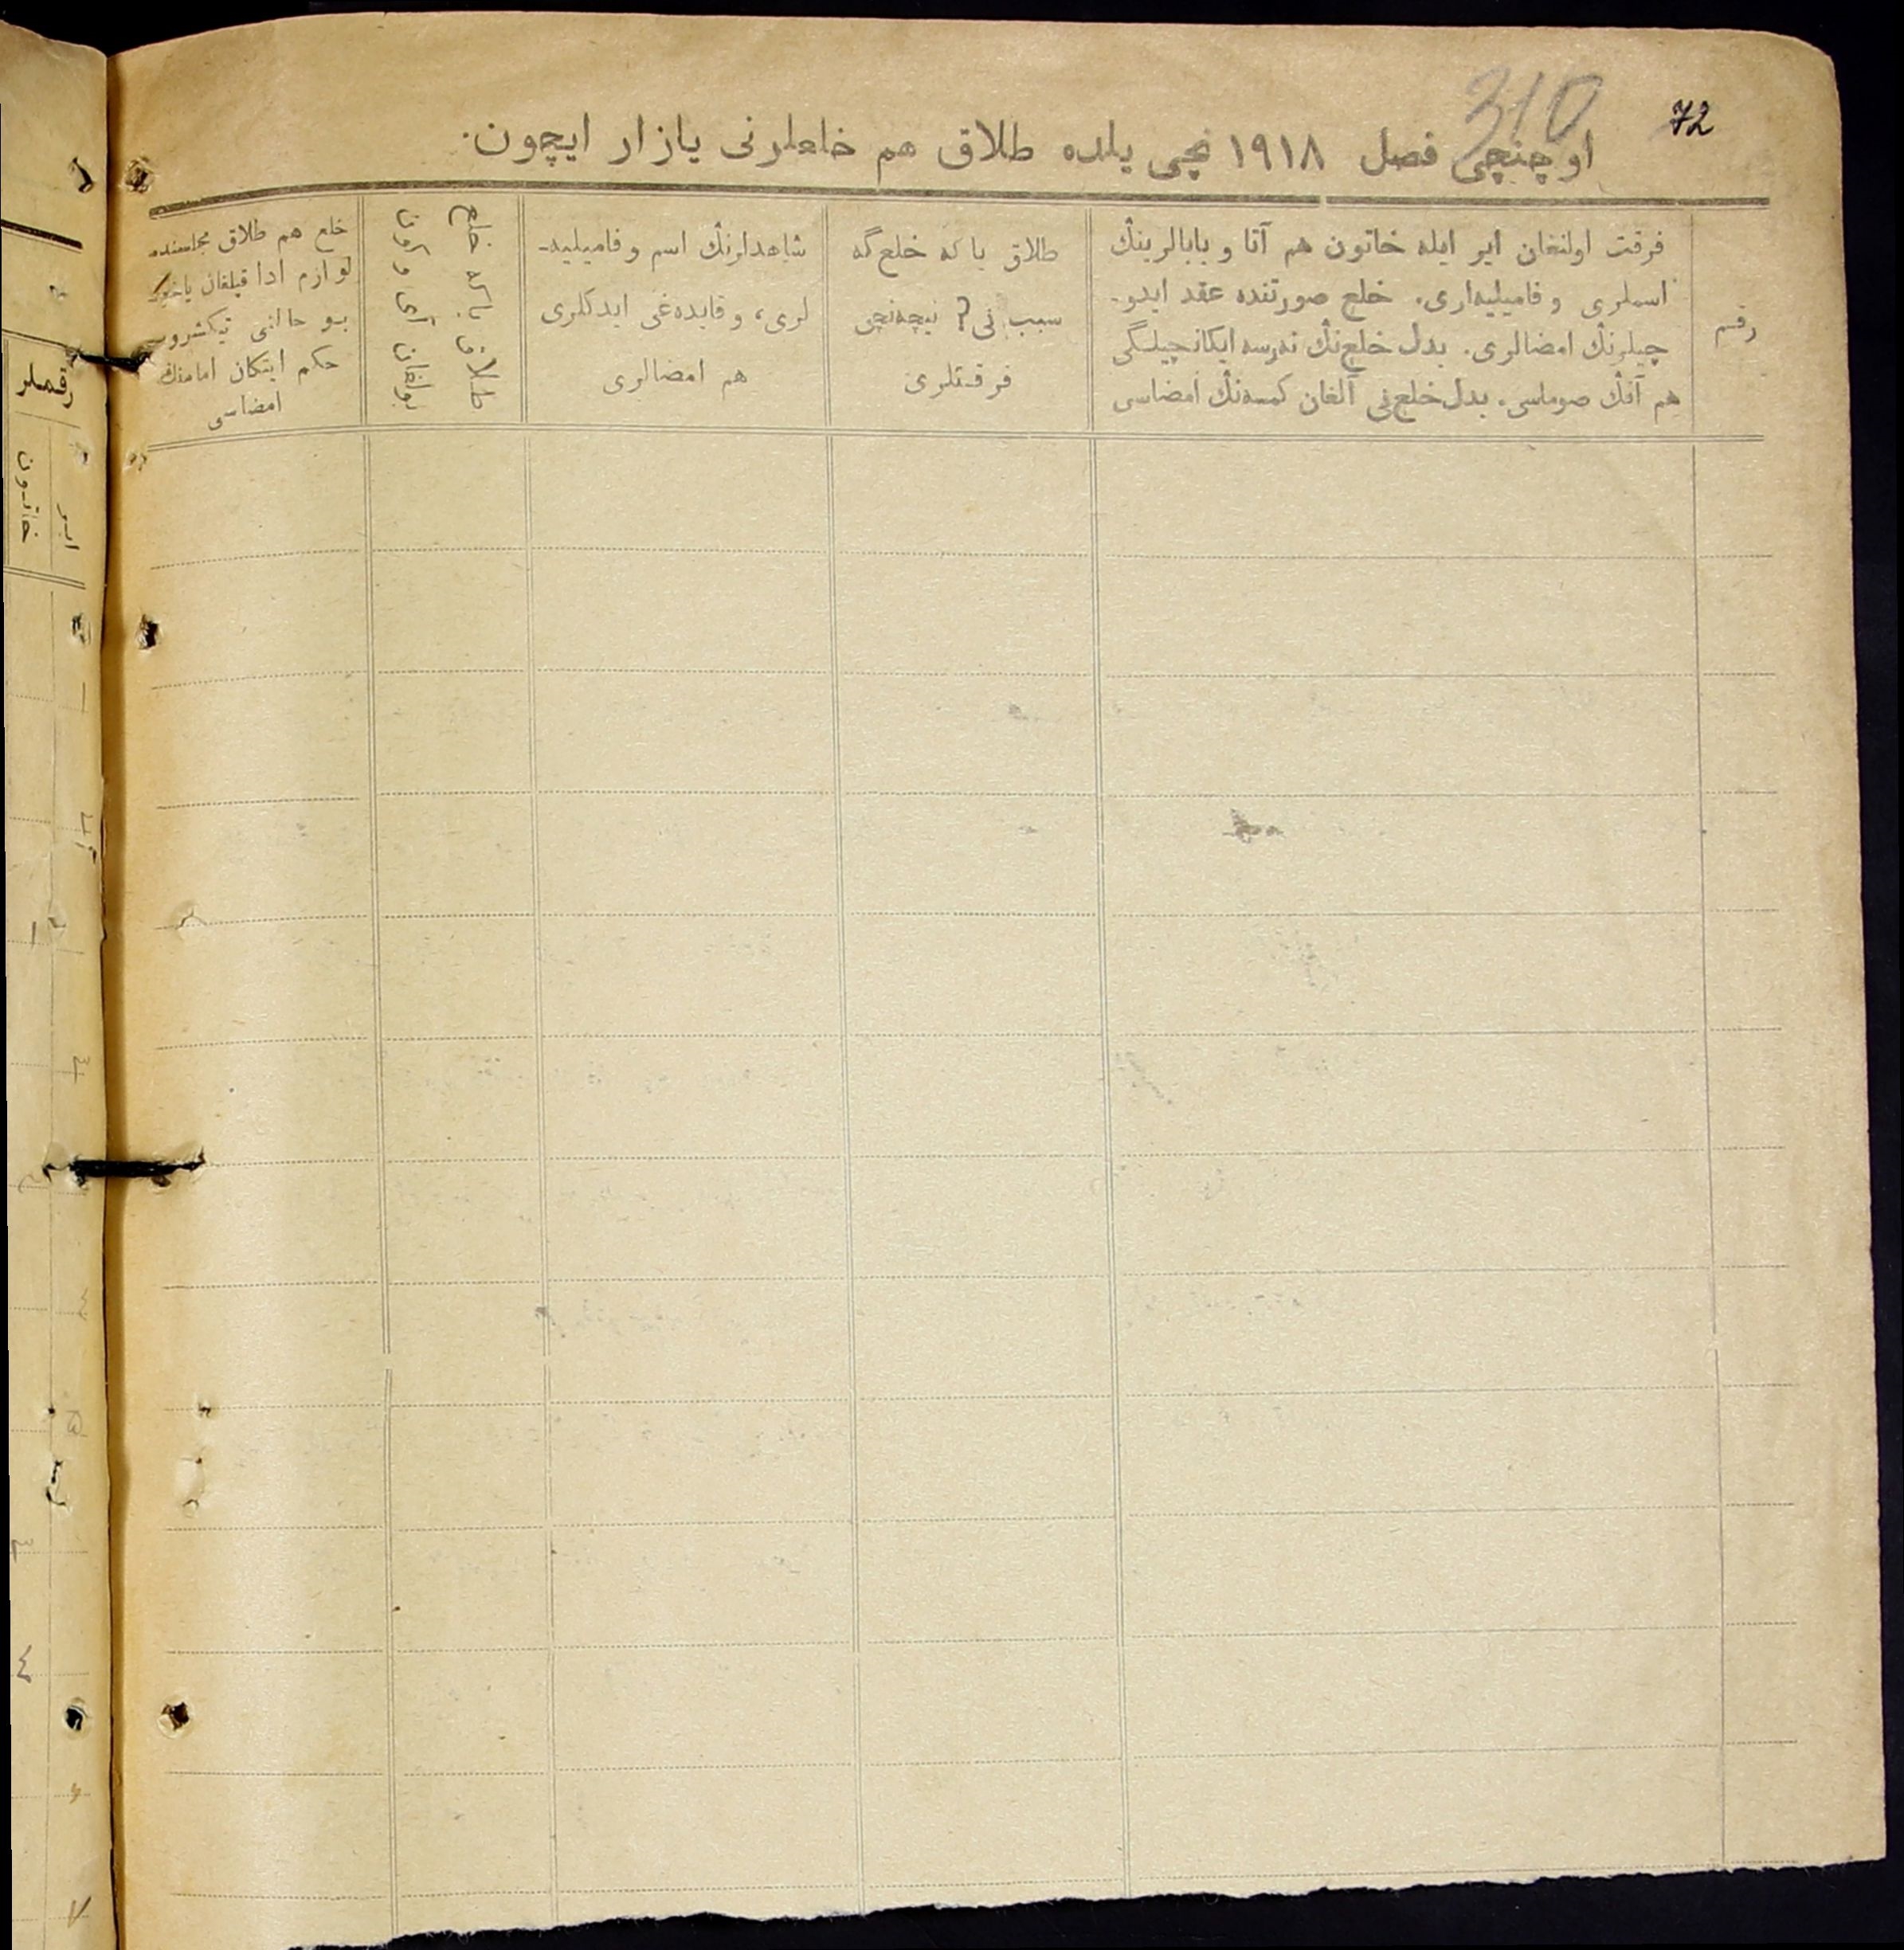 310
72
اوچنچی فصل ۱۹۱۸ نچی یلده طلاق هم خلعلرنی یازار ایچون.
رقم
فرقت اولنغان ایر ایله خاتون هم آتا و بابالرینڭ
اسملری و فامیلیه‌لری. خلع صورتنده عقد ایدو-
چیلرنڭ امضالری. بدل خلع‌نڭ نه‌رسه ایکانچیلگی
هم آنڭ صوماسی. بدل خلع‌نی آلغان کمسه‌نڭ امضاسی
طلاق یا که خلع گه
سبب نی؟ نیچه‌نچی
فرقتلری
شاهدلرنڭ اسم و فامیلیه-
لری، و قایده‌غی ایدکلری
هم امضالری
طلاق یا که خلع
بولغان آی و کون
خلع هم طلاق مجلسنده
لوازم ادا قیلغان یاخود
بو حالنی تیکشروب
حکم ایتکان امامنڭ
امضاسی
رقملر
ایر
خاتون